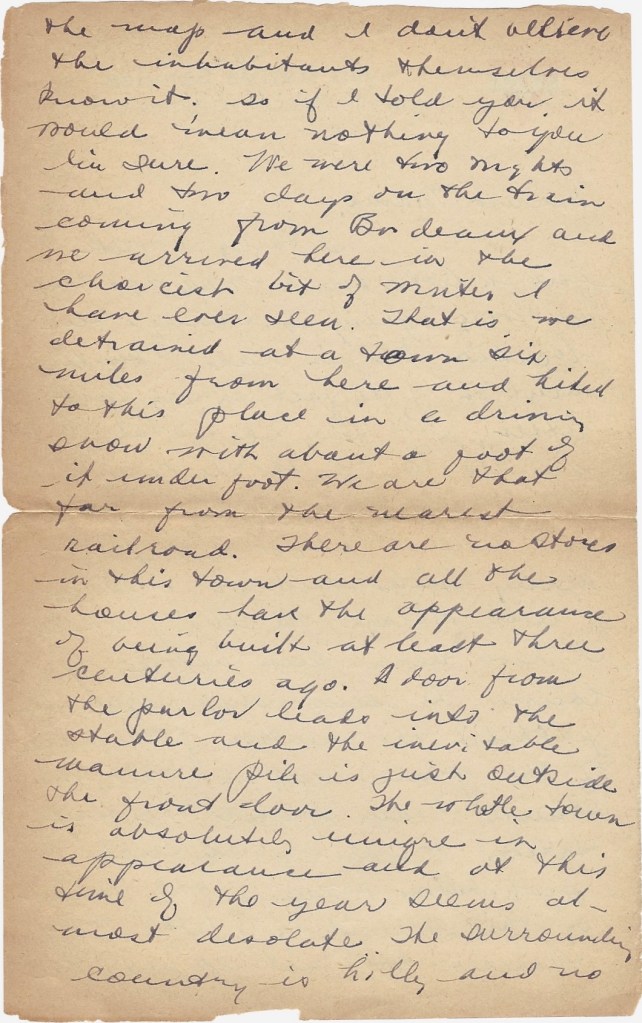 the map and I don't believe
the inhabitants themselves
know it. so if I told you it
would mean nothing to you
I'm sure. We were two nights
and two days on the train
coming from Bordeaux and
we arrived here in the
choicest bit of winter I
have ever seen. That is we
detrained at a town six
miles from here and hiked
to this place in a driving
snow with about a foot of
it under foot. We are that
far from the nearest
railroad. There are no stores
in this town and all the
houses have the appearance
of being built at least three
centuries ago. A door from
the parlor leads into the
stable and the inevitable
manure pile is just outside
the front door. The whole town
is absolutely unique in
appearance and at this
time of the year seems al-
most desolate. The surrounding
country is hilly and no